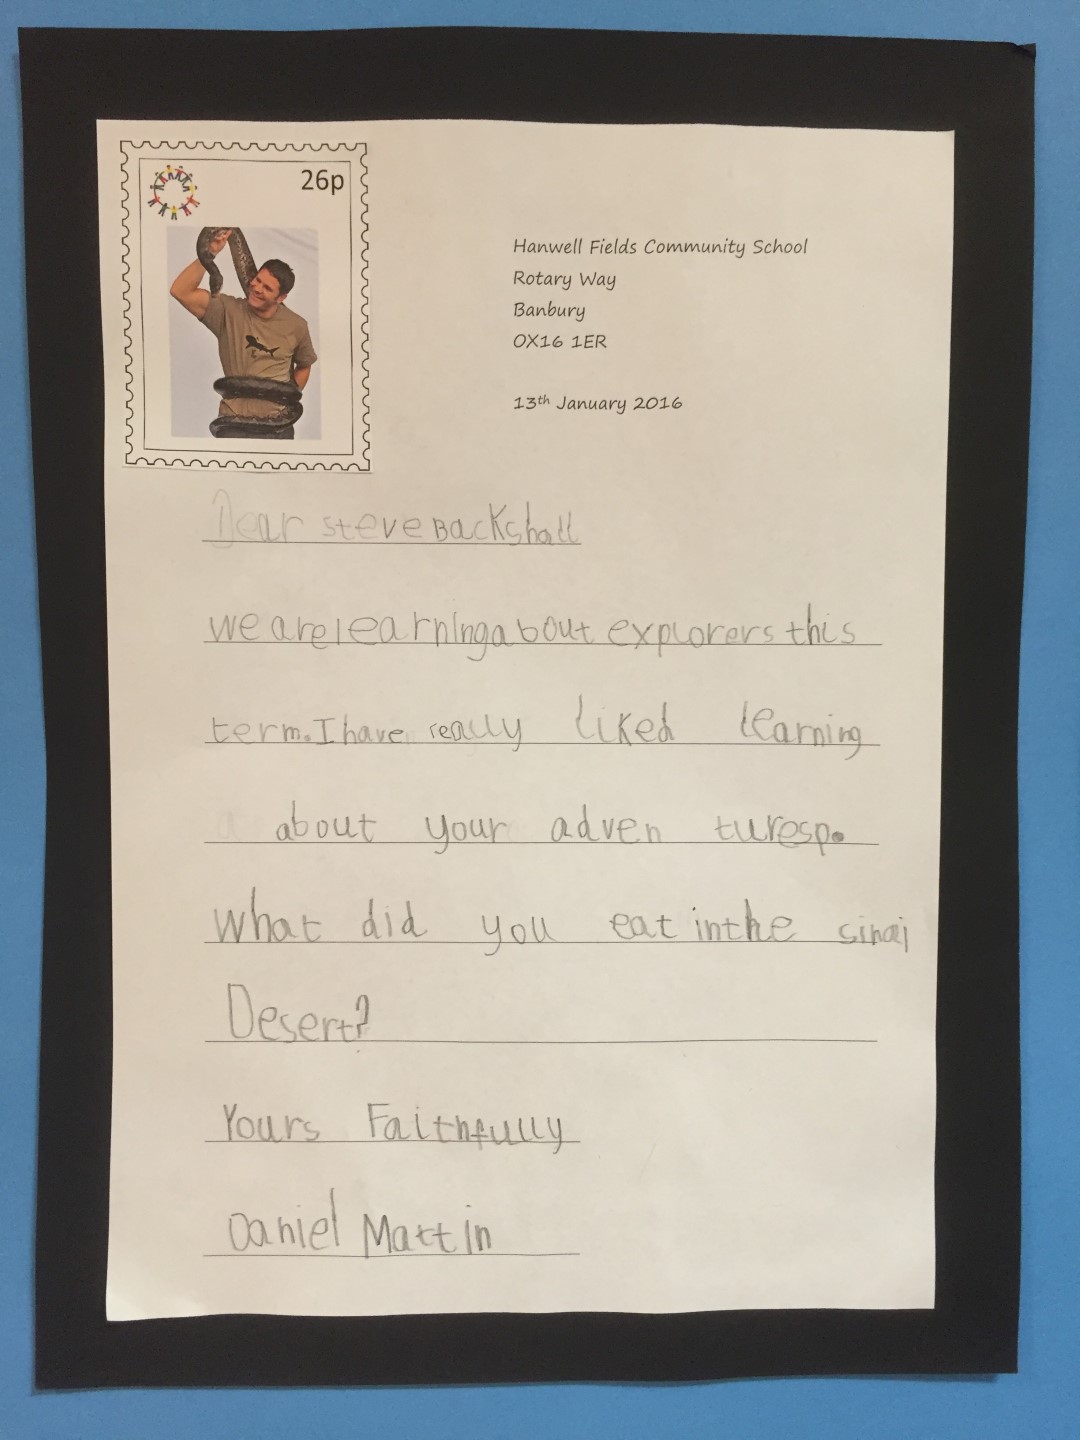 26p
Hanwell Fields Community School
Rotary Way
Banbury
OX16 1ER
13th January 2016
Dear steve Backshall
we are learning about explorers this
term. I have really liked learning
about your adven turesp.
What did you eat in the sinai
Desert?
Yours Faithfully
Daniel Mattin